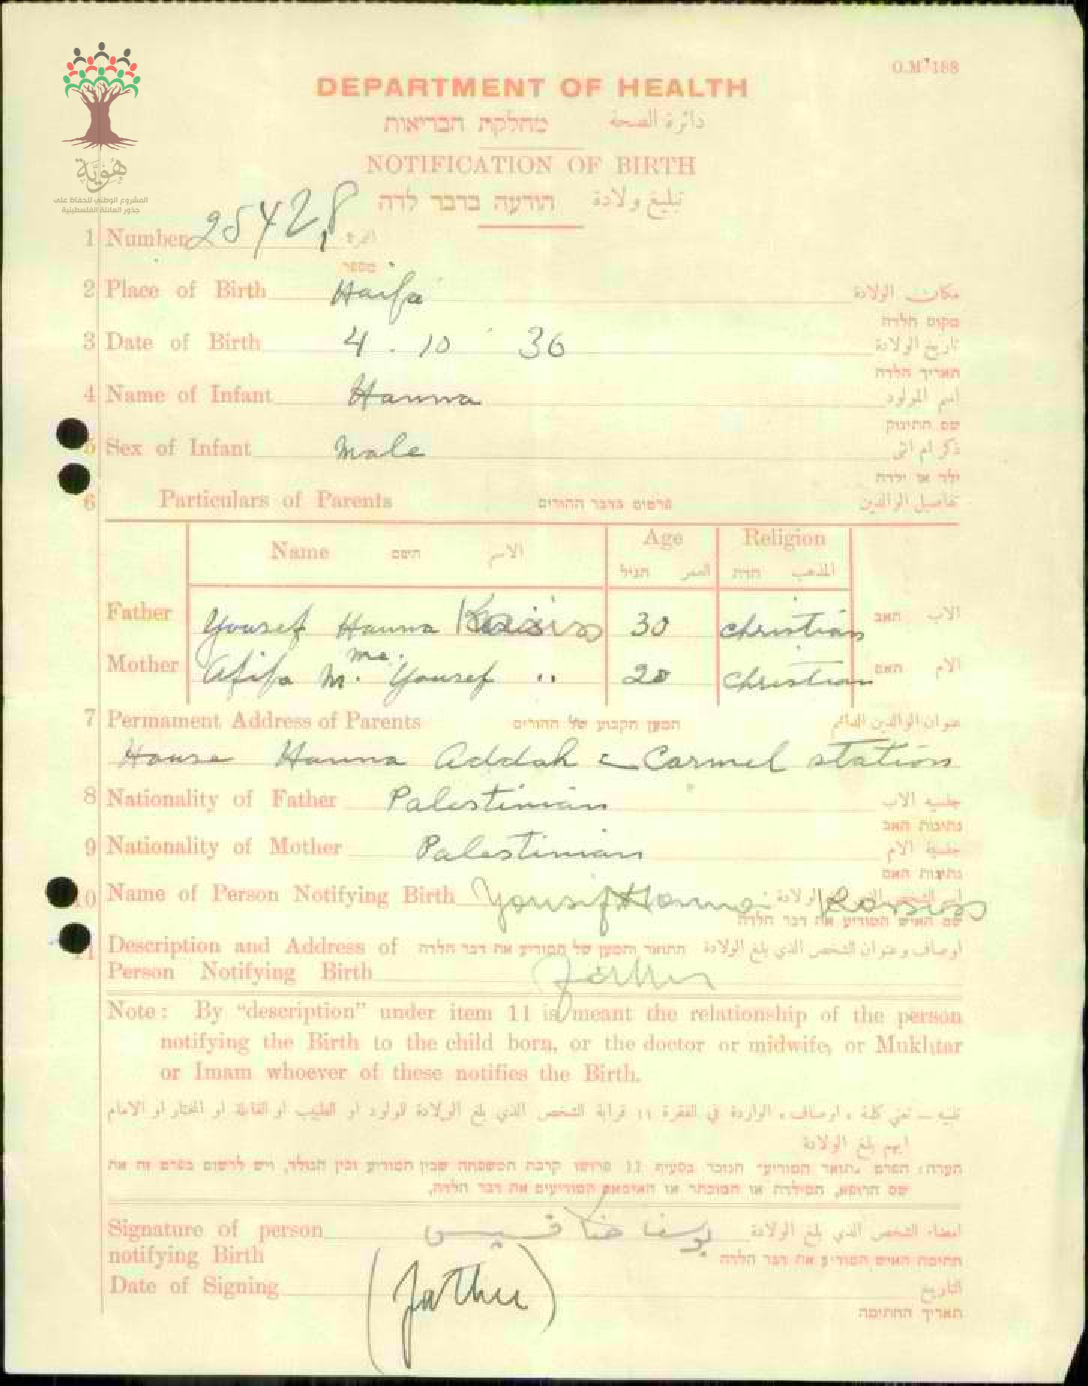 هُوِيَّة
المشروع الوطني للحفاظ على
جذور العائلة الفلسطينية
O.M 188
DEPARTMENT OF HEALTH
מחלקת הבריאות دائرة الصحة
NOTIFICATION OF BIRTH
הודעה בדבר לדה تبليغ ولادة
1 Number 25428
מספר
2 Place of Birth Haifa مكان الولادة
מקום הלדה
3 Date of Birth 4 . 10 36 تاريخ الولادة
תאריך הלדה
4 Name of Infant Hanna اسم المولود
שם התינוק
5 Sex of Infant Male ذكر ام انثى
ילד או ילדה
6 Particulars of Parents פרטים בדבר ההורים تفاصيل الوالدين
Name השם الاسم Age הגיל العمر Religion הדת المذهب
Father Yousef Hanna 30 christian האב الاب
Mother Afifa M. Yousef .. 20 christian האם الام
7 Permament Address of Parents המען הקבוע של ההורים عنوان الوالدين الدائم
House Hanna Addah Carmel station
8 Nationality of Father Palestinian جنسية الاب
נתינות האב
9 Nationality of Mother Palestinian جنسية الام
נתינות האם
10 Name of Person Notifying Birth Yousif Hanna
שם האיש המודיע את דבר הלדה
11 Description and Address of התואר והמען של המודיע את דבר הלדה اوصاف وعنوان الشخص الذي بلغ الولادة
Person Notifying Birth Father
Note: By “description” under item 11 is meant the relationship of the person
notifying the Birth to the child born, or the doctor or midwife, or Mukhtar
or Imam whoever of these notifies the Birth.
تنبيه — تعني كلمة « اوصاف » الواردة في الفقرة ١١ قرابة الشخص الذي بلغ الولادة للولود او الطبيب او القابلة او المختار او الامام
ايهم بلغ الولادة
הערה: הפרט „תואר המודיע” הנזכר בסעיף 11 פרושו קרבת המשפחה שבין המודיע ובין הנולד, ויש לרשום בפרט זה את
שם הרופא, המילדת או המוכתר או האימאם המודיעים את דבר הלדה.
Signature of person يوسف حنا قسيس امضاء الشخص الذي بلغ الولادة
notifying Birth חתימת האיש המודיע את דבר הלדה
Date of Signing (Father) التاريخ
תאריך החתימה